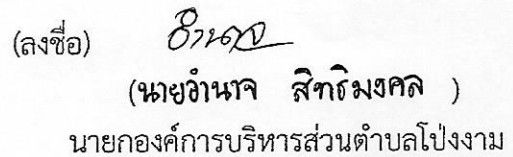 (ลงชื่อ) อำนาจ
(นายอำนาจ สิทธิมงคล )
นายกองค์การบริหารส่วนตำบลโป่งงาม